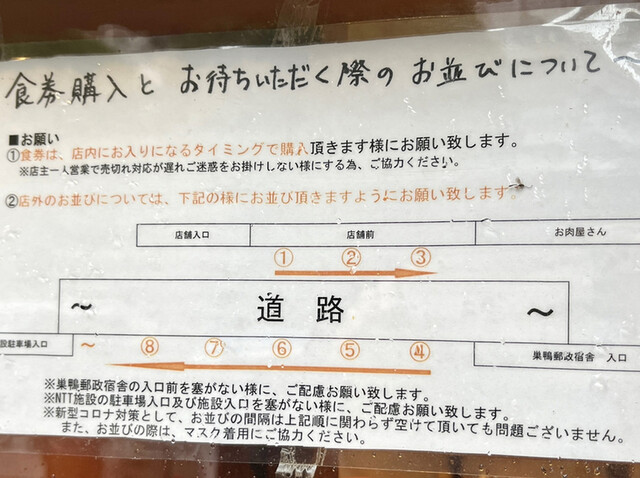 食券購入と お待ちいただく際の お並びについて
■お願い
①食券は、店内にお入りになるタイミングで購入頂きます様にお願い致します。
※店主一人営業で売切れ対応が遅れご迷惑をお掛けしない様にする為、ご協力ください。
②店外のお並びについては、下記の様にお並び頂きますようにお願い致します
店舗入口 店舗前 お肉屋さん
① ② ③
～ 道 路 ～
設駐車場入口 ～ ⑧ ⑦ ⑥ ⑤ ④ 巣鴨郵政宿舎 入口
※巣鴨郵政宿舎の入口前を塞がない様に、ご配慮お願い致します。
※NTT施設の駐車場入口及び施設入口を塞がない様に、ご配慮お願い致します。
※新型コロナ対策として、お並びの間隔は上記順に関わらず空けて頂いても問題ございません。
また、お並びの際は、マスク着用にご協力ください。